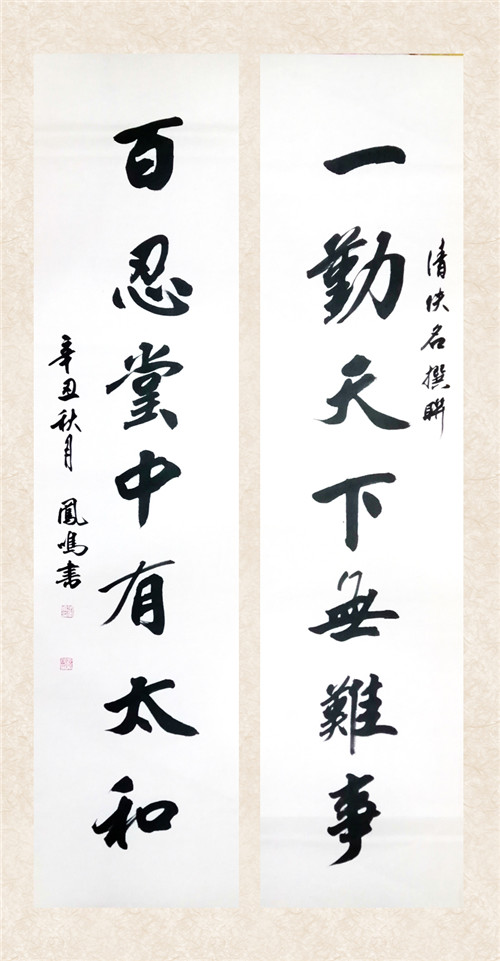 一勤天下無難事
清佚名撰聯
百忍堂中有太和
辛丑秋月 鳳鳴書